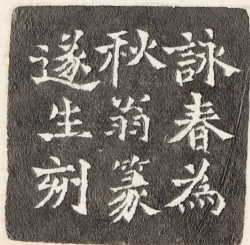 詠春為
秋翁篆
遂生刻